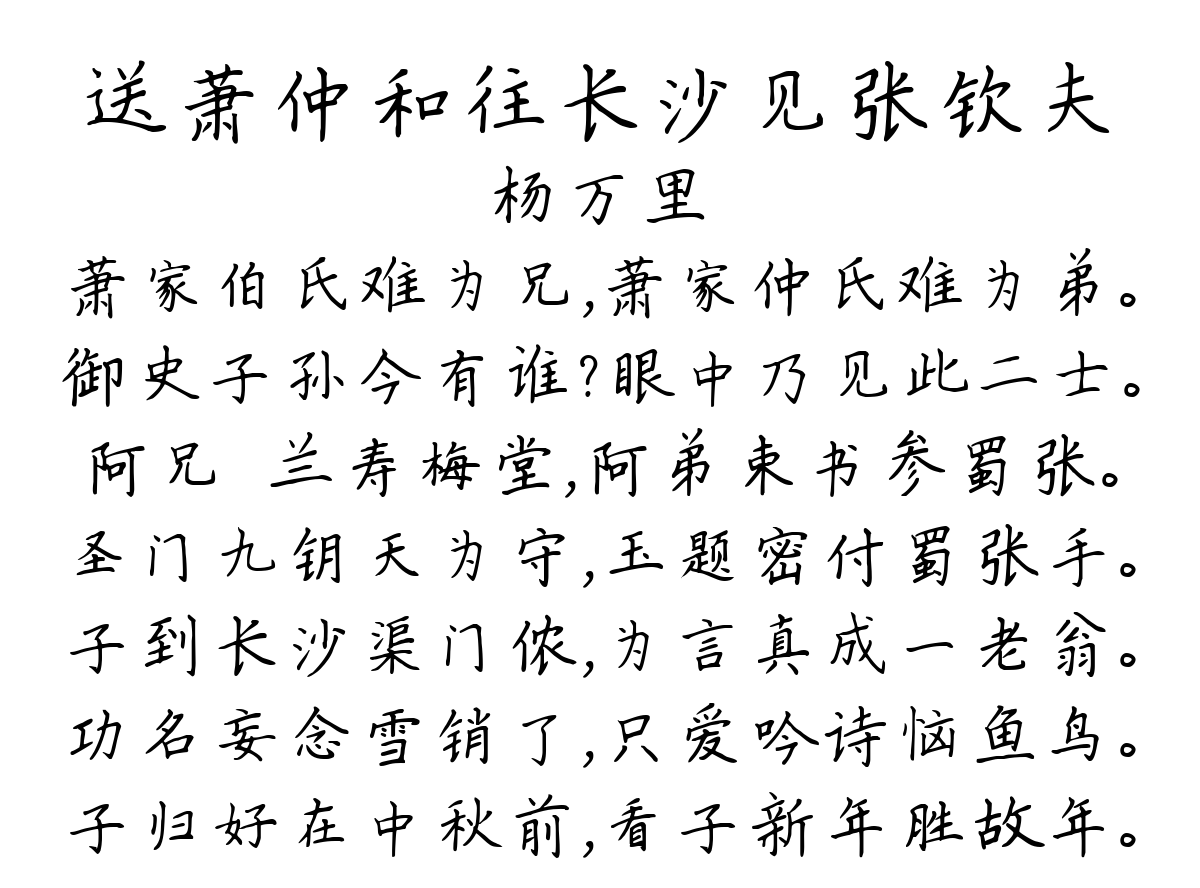 送萧仲和往长沙见张钦夫
杨万里
萧家伯氏难为兄,萧家仲氏难为弟。
御史子孙今有谁?眼中乃见此二士。
阿兄 兰寿梅堂,阿弟束书参蜀张。
圣门九钥天为守,玉题密付蜀张手。
子到长沙渠门侬,为言真成一老翁。
功名妄念雪销了,只爱吟诗恼鱼鸟。
子归好在中秋前,看子新年胜故年。